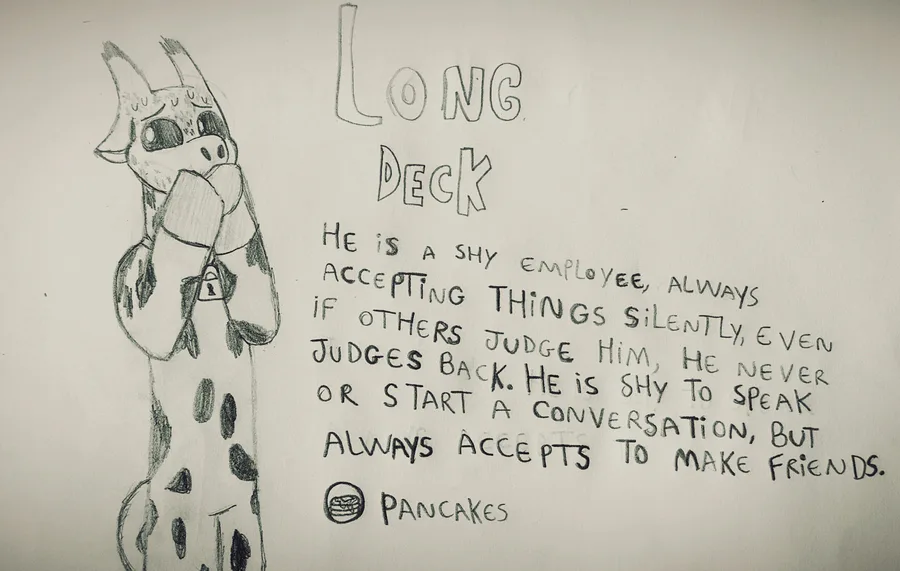 LONG
DECK
HE iS A SHY EMPLOYEE, ALWAYS
ACCEPTiNG THiNGS SiLENTLY, EVEN
iF OTHERS JUDGE HiM, HE NEVER
JUDGES BACK. HE iS SHY TO SPEAK
OR START A CONVERSATiON, BUT
ALWAYS ACCEPTS TO MAKE FRiENDS.
PANCAKES